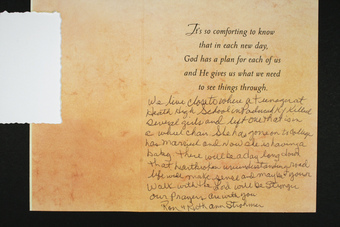 It's so comforting to know
that in each new day,
God has a plan for each of us
and He gives us what we need
to see things through.
We live close to where a teenager at
Heath High School in Paducah, Ky killed
several girls and left one that is in
a wheel chair. She has gone on to College
has married and now she is having a
baby. There will be a day, long
that
life will make sense and maybe
Walk with the Lord will be stronger
Our Prayers are with you
Ron & Ruth Ann